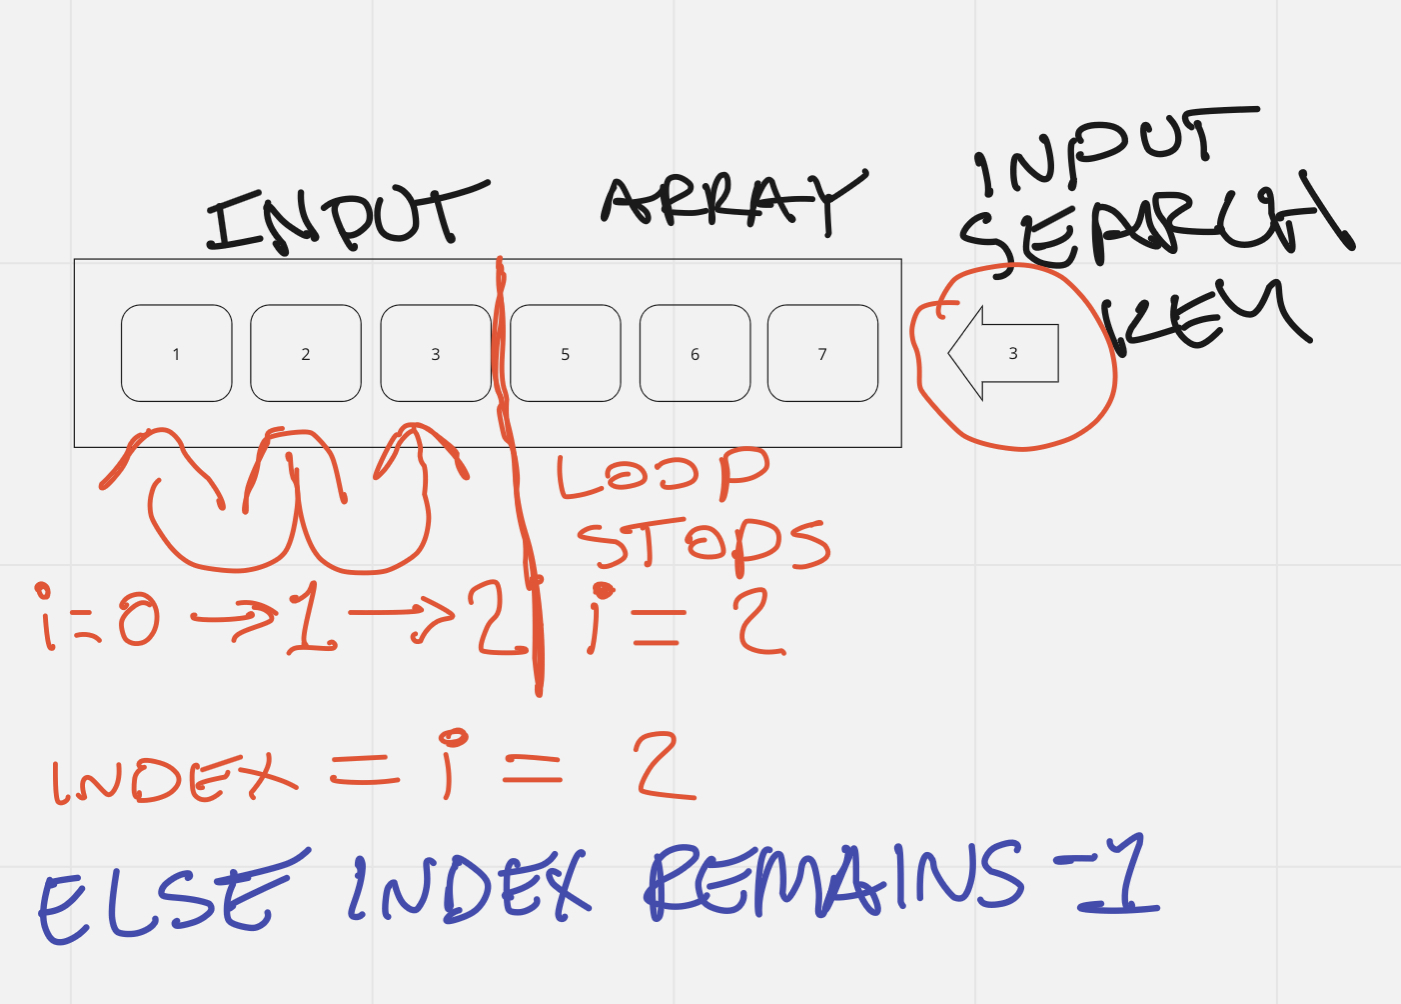 INPUT ARRAY
INPUT
SEARCH
KEY
1 2 3 5 6 7
3
LOOP
STOPS
i=0 → 1 → 2 i = 2
INDEX = i = 2
ELSE INDEX REMAINS -1